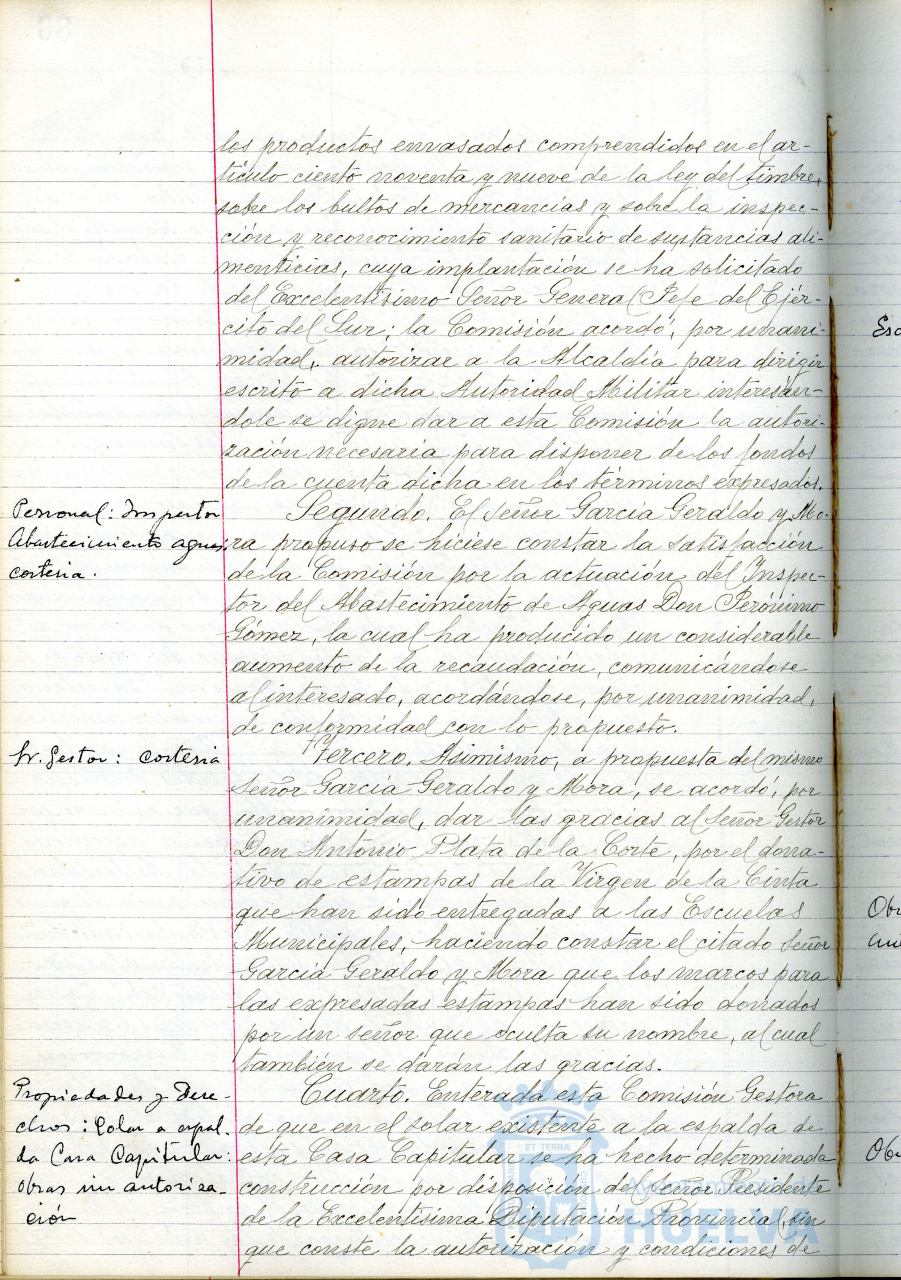 los productos envasados comprendidos en el ar-
tículo ciento noventa y nueve de la ley del timbre,
sobre los bultos de mercancías y sobre la inspec-
ción y reconocimiento sanitario de sustancias ali-
menticias, cuya implantación se ha solicitado
del Excelentísimo Señor General Jefe del Ejér-
cito del Sur; la Comisión acordó, por unani-
midad, autorizar a la Alcaldía para dirigir
escrito a dicha Autoridad Militar interesán-
dole se digne dar a esta Comisión la autori-
zación necesaria para disponer de los fondos
de la cuenta dicha en los términos expresados.
Personal: Inspector
Abastecimiento aguas:
cortesia.
Segundo. El Señor García Geraldo y Mo-
ra propuso se hiciese constar la satisfacción
de la Comisión por la actuación del Inspec-
tor del Abastecimiento de Aguas Don Jerónimo
Gómez, la cual ha producido un considerable
aumento de la recaudación, comunicándose
al interesado, acordándose, por unanimidad,
de conformidad con lo propuesto.
Sr. Gestor: cortesia
Tercero. Asimismo, a propuesta del mismo
Señor García Geraldo y Mora, se acordó, por
unanimidad, dar las gracias al Señor Gestor
Don Antonio Plata de la Corte, por el dona-
tivo de estampas de la Virgen de la Cinta
que han sido entregadas a las Escuelas
Municipales, haciendo constar el citado Señor
García Geraldo y Mora que los marcos para
las expresadas estampas han sido donados
por un señor que oculta su nombre, al cual
también se darán las gracias.
Propiedades y Dere-
chos: Solar a espal-
da Casa Capitular:
obras sin autoriza-
ción
Cuarto. Enterada esta Comisión Gestora
de que en el solar existente a la espalda de
esta Casa Capitular se ha hecho determinada
construcción por disposición del Señor Presidente
de la Excelentísima Diputación Provincial, sin
que conste la autorización y condiciones de
Esc
Obr
Ob
ET TERRÆ
Ayuntamiento de
HUELVA